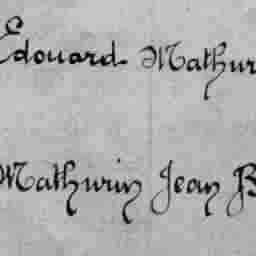 Edouard Mathur
Mathurin Jean B